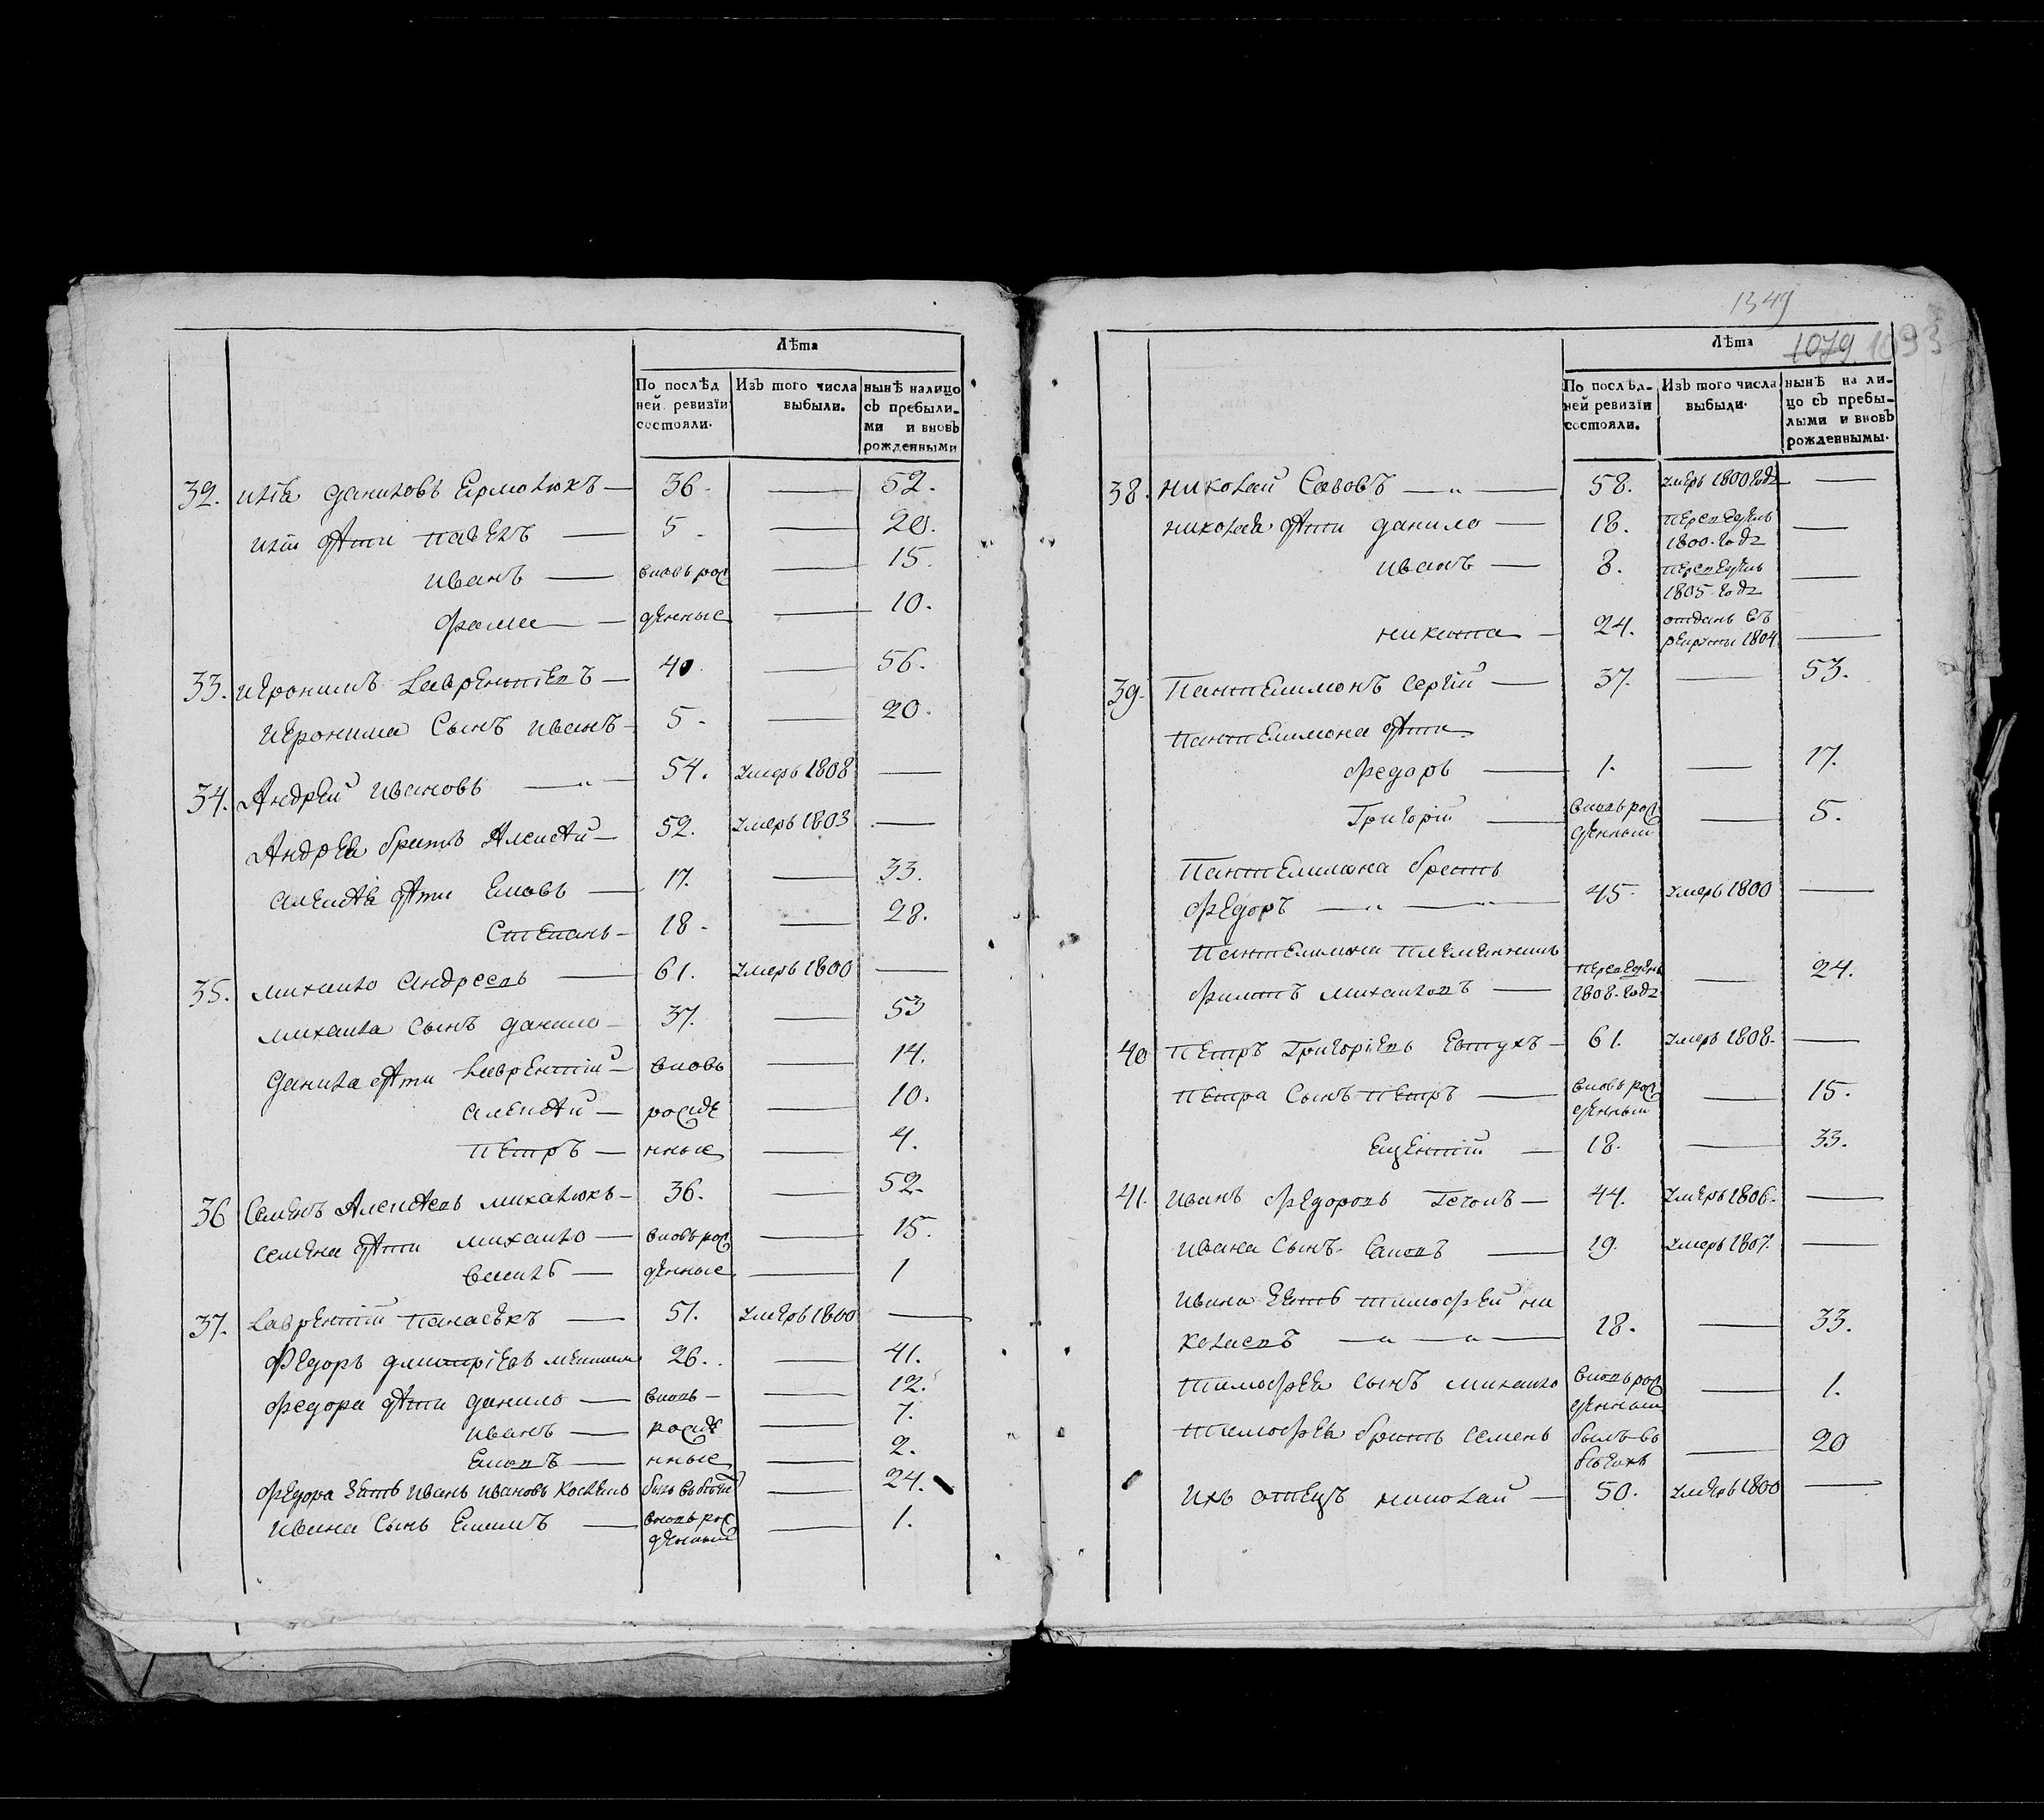 Лѣта
По послѣд ней ревизіи состояли.
Изъ того числа выбыли.
нынѣ налицо съ пребыли-ми и вновь рожденными
32. илїа даниловъ Ермолюкъ — 36. — 52.
иліи дѣти павелъ — 5. — 20.
иванъ — вновь рож — 15.
фама — денные — 10.
33. иеронимъ Лаврентіевъ — 40 — 56.
иеронима Сынъ иванъ — 5. — 20.
34. Андрей ивановъ — „ — 54. умеръ 1808 —
Андрея братъ Алексѣй — 52. умеръ 1803 —
алексѣя дѣти Еиовъ — 17. — 33.
Степанъ — 18. — 28.
35. михаило андреевъ — 61. умеръ 1800 —
михаила сынъ данило — 37. — 53
данила дѣти Лаврентій — вновь — 14.
алексѣй — рожде — 10.
петръ — нные — 4.
36 Семенъ Алексѣевъ михалюкъ — 36. — 52.
семена дѣти михаило — вновь рож — 15.
василь — денные — 1
37. Лаврентій панасюкъ — 51. умеръ 1800 —
Федоръ дмитріевъ 26. — 41.
федора дѣти данило — вновь — 12.
иванъ — рожде — 7.
Еиовъ — нные — 2.
федора зять иванъ ивановъ 24.
ивана сынъ Екимъ — вновь рож денный — 1.
1349
1079 1093
Лѣта
По послѣд-ней ревизіи состояли.
Изъ того числа выбыли.
нынѣ на ли-цо съ пребы-лыми и вновь рожденнымы.
38. николай Савовъ — „ — 58. умеръ 1800 года —
николая дѣти данило — 18. переведенъ 1800. года —
иванъ — 8. переведенъ 1805 года —
никита — 24. отданъ въ рекруты 1804 —
39. Пантелимонъ сергій — 37. — 53.
пантелимона дѣти
федоръ — 1. — 17.
Григорій — вновь рож денный — 5.
Пантелимона братъ
федоръ — „ — „ — 45. умеръ 1800 —
пантелимона племенникъ
филипъ михаиловъ — переведенъ 1808. года — 24.
40 петръ Григоріевъ Евтухъ — 61. умеръ 1808. —
петра сынъ петръ — вновь рож денный — 15.
18. — 33.
41. иванъ федоровъ 44. умеръ 1806. —
ивана сынъ 19. умеръ 1807. —
ивана зять тимофей ни
колаевъ — „ — „ — 18. — 33.
тимофея сынъ михаило вновь рож денный — 1.
тимофея братъ семенъ былъ въ бѣгахъ — 20
ихъ отецъ николай — 50. умеръ 1800 —